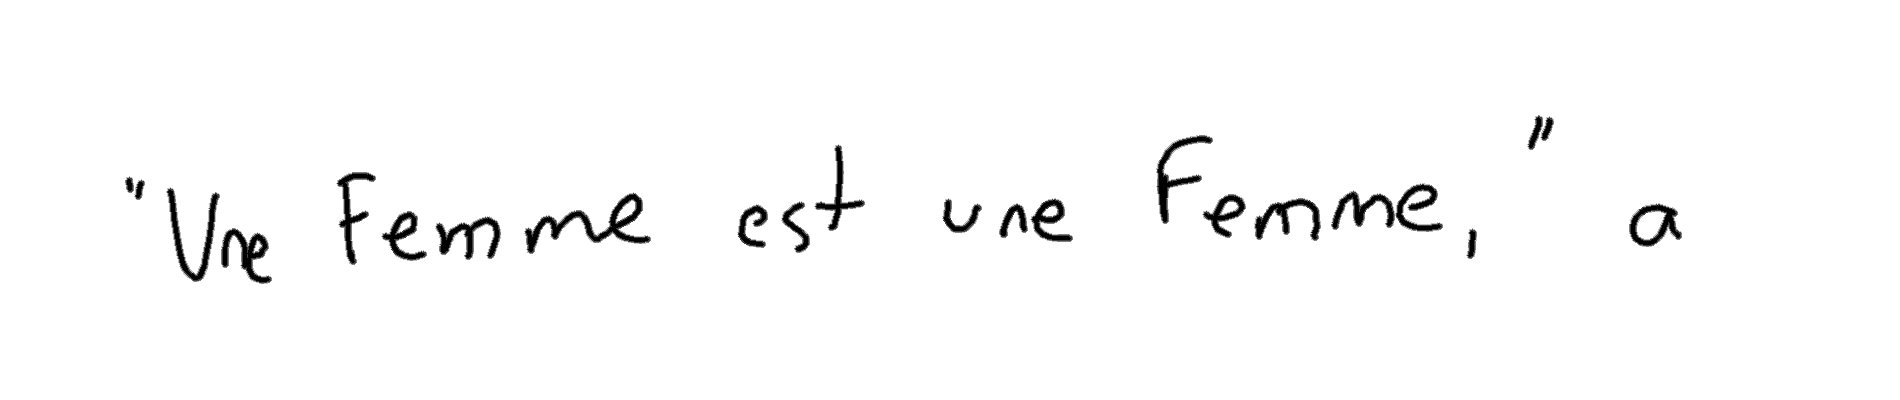 "Une Femme est une Femme," a